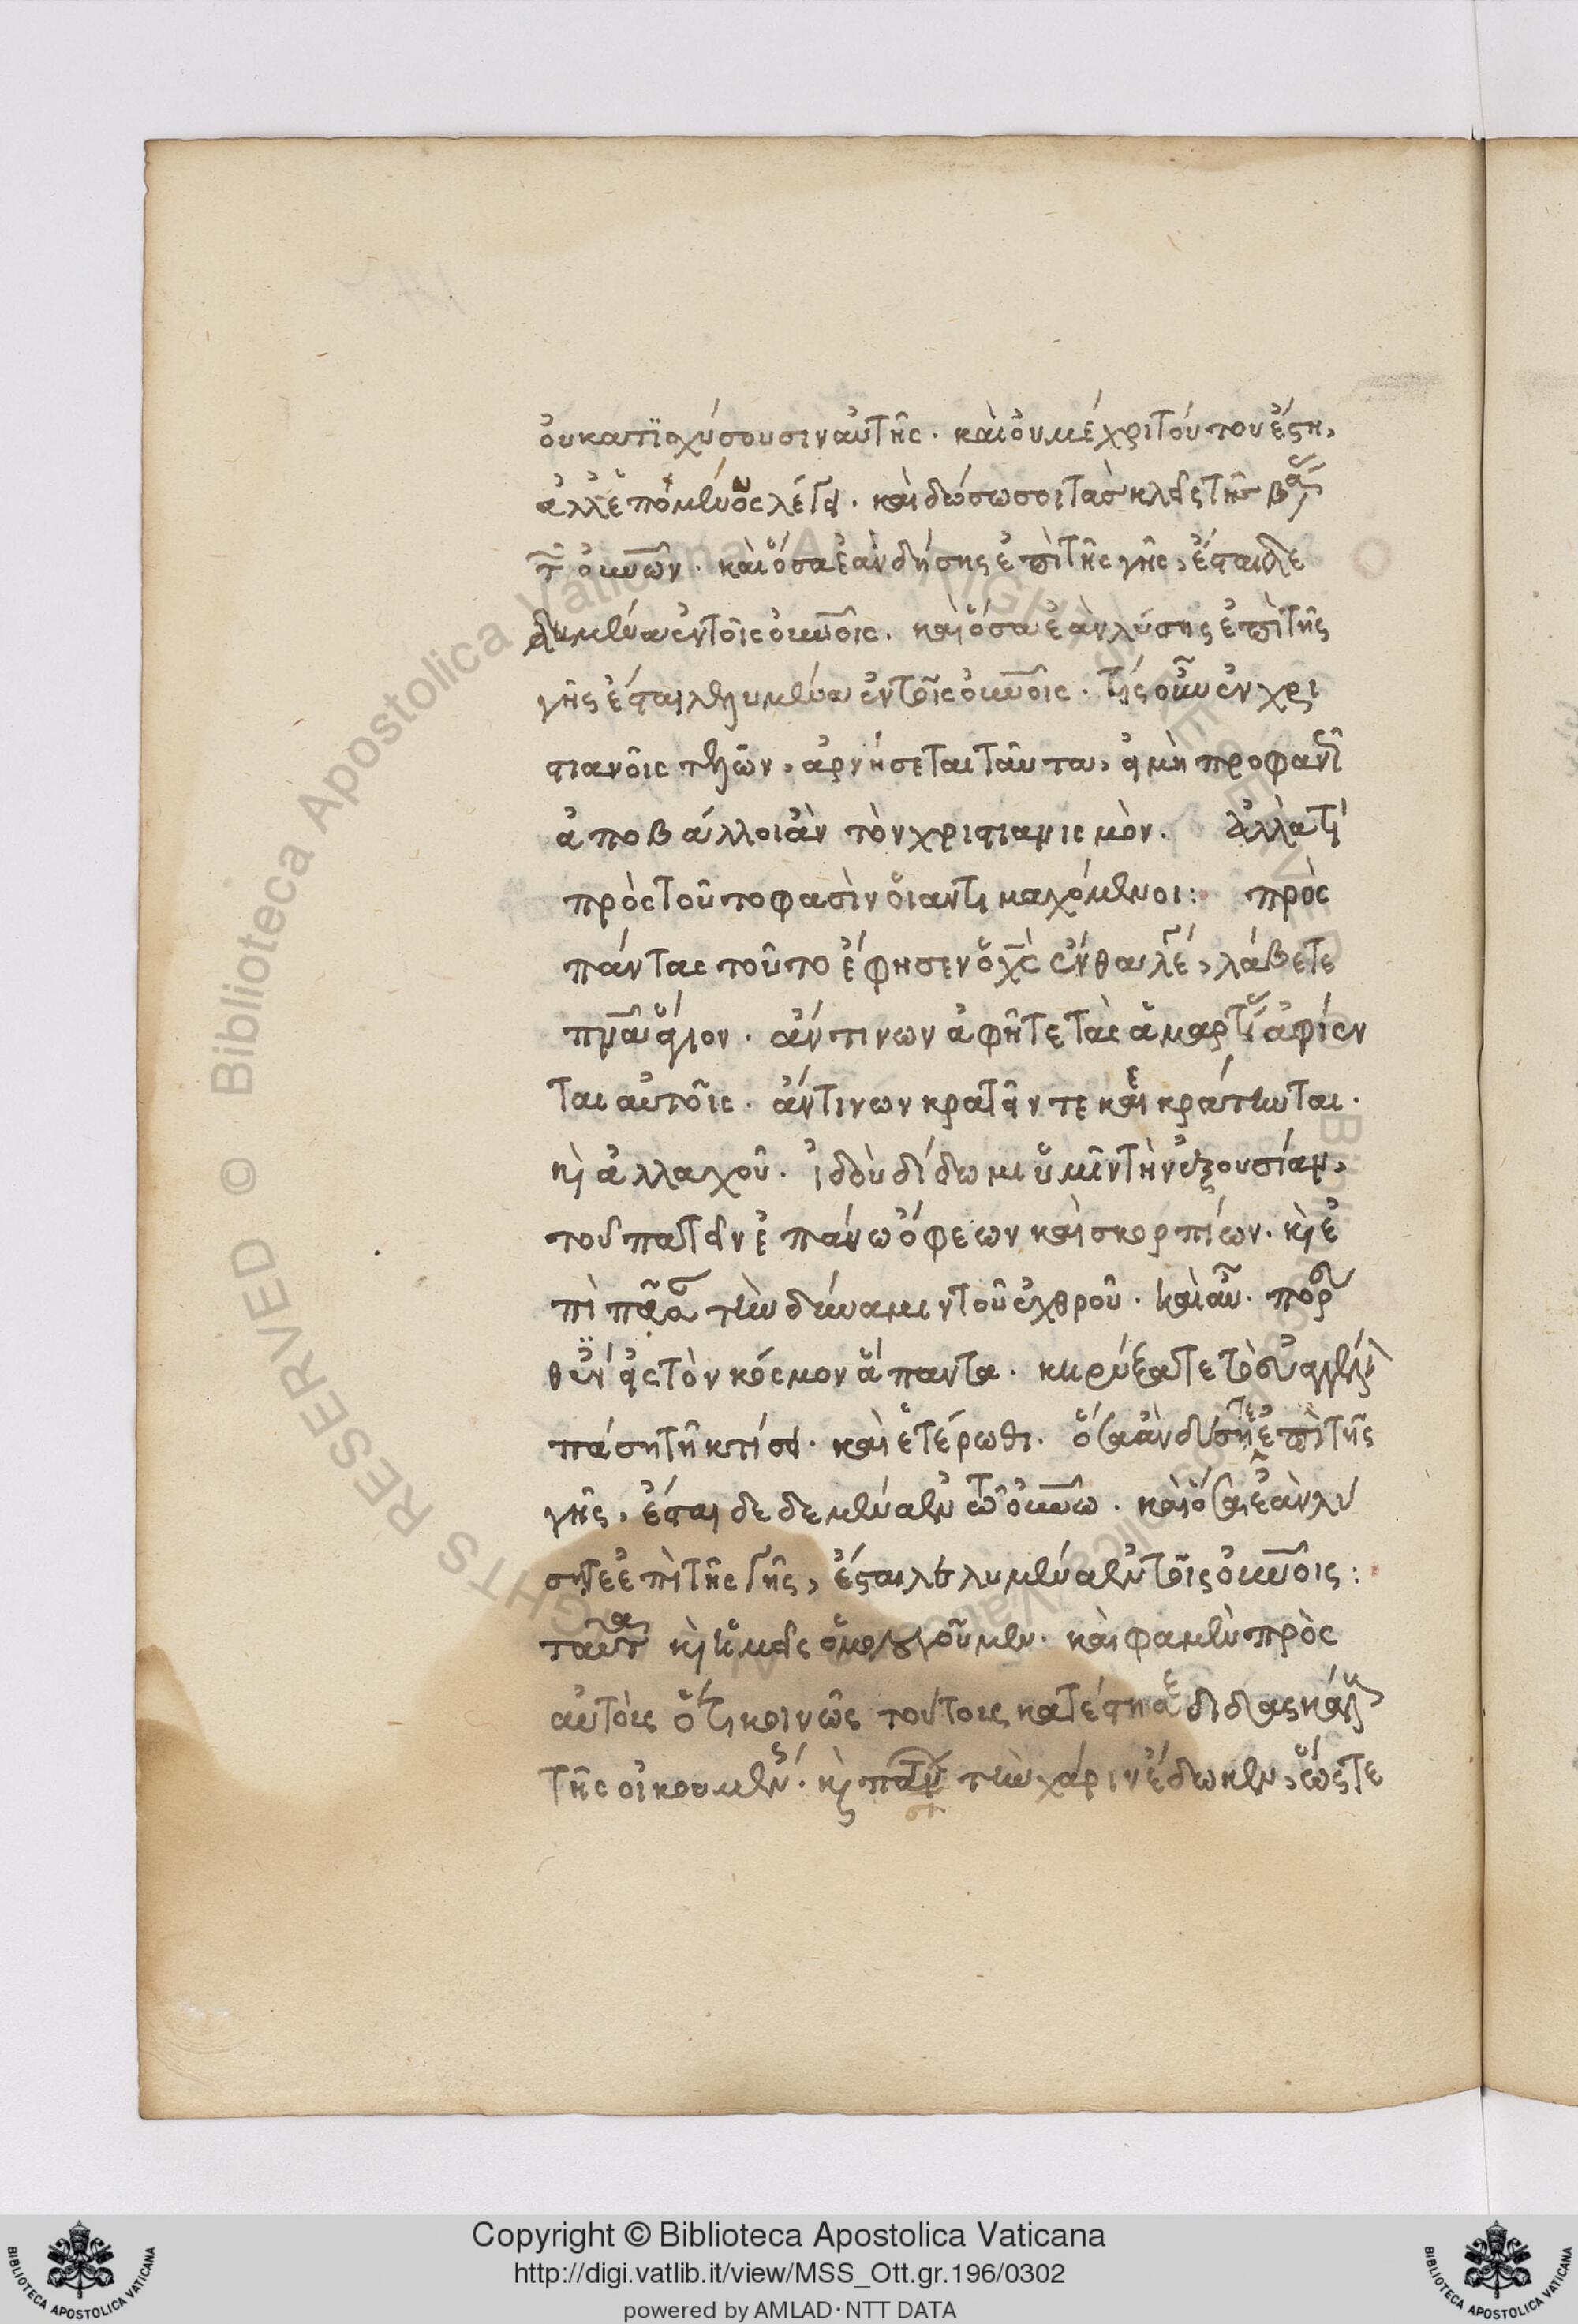 οὐ κατϊσχύσουσιν αὐτῆς. καὶ οὐ μέχρι τούτου ἔστη,
ἀλλ' ἑπόμενος λέγει. καὶ δώσω σοι τὰς κλεῖς τῆς βασ
τ οὐνῶν. καὶ ὅσα ἐὰν δήσης ἐπὶ τῆς γῆς, ἔσται δε
δεμένα ἐν τοῖς οὐνοῖς. καὶ ὅσα ἐὰν λύσης ἐπὶ τῆς
γῆς ἔσται λελυμένα ἐν τοῖς οὐνοῖς. τίς οὖν ἐν χρι
στιανοῖς τελῶν, ἀρνήσεται ταῦτα, εἰ μὴ προφανῶς
ἀποβάλλοι ἂν τὸν χριστιανισμὸν. ἀλλὰ τί
πρὸς τοῦτο φασὶν οἱ αντιμαχόμενοι: πρὸς
πάντας τοῦτο ἔφησεν ὁ χς ἔνθα λέγει, λάβετε
πνα ἅγιον. ἄν τινων ἀφῆτε τὰς ἁμαρτίας ἀφίεν
ται αὐτοῖς. ἄν τινων κρατῆντε κεκράτηνται.
κὶ ἀλλαχοῦ. ἰδοὺ δίδωμι ὑμῖν τὴν ἐξουσίαν,
τοῦ πατεῖν ἐπάνω ὄφεων καὶ σκορπίων. κὶ ἐ
πὶ πᾶσαν τὴν δύναμιν τοῦ ἐχθροῦ. καὶ αὖ. πορευ
θέντες εἰς τὸν κόσμον ἅπαντα. κηρύξατε τὸ εὐαγγέλιον
πάση τῆ κτίσει. καὶ ἑτέρωθι. ὅσα ἂν δήσητε ἐπὶ τῆς
γῆς. ἔσται δεδεμένα ἐν τῶ οὐνῶ. καὶ ὅσα ἐὰν λύ
σητε ἐπὶ τῆς γῆς, ἔσται λελυμένα ἐν τοῖς οὐνοῖς:
ταῦτα κὶ ἡμεῖς ὁμολογοῦμεν. καὶ φαμὲν πρὸς
αὐτοὺς ὅτι κοινῶς τούτους κατέστησε διδασκάλους
τῆς οἰκουμένης. κὶ πᾶσιν τὴν χάριν ἔδωκεν, ὥστε
© Biblioteca Apostolica Vaticana
Copyright © Biblioteca Apostolica Vaticana
http://digi.vatlib.it/view/MSS_Ott.gr.196/0302
powered by AMLAD·NTT DATA
BIBLIOTECA APOSTOLICA VATICANA
BIBLIOTECA APOSTOLICA VATICANA